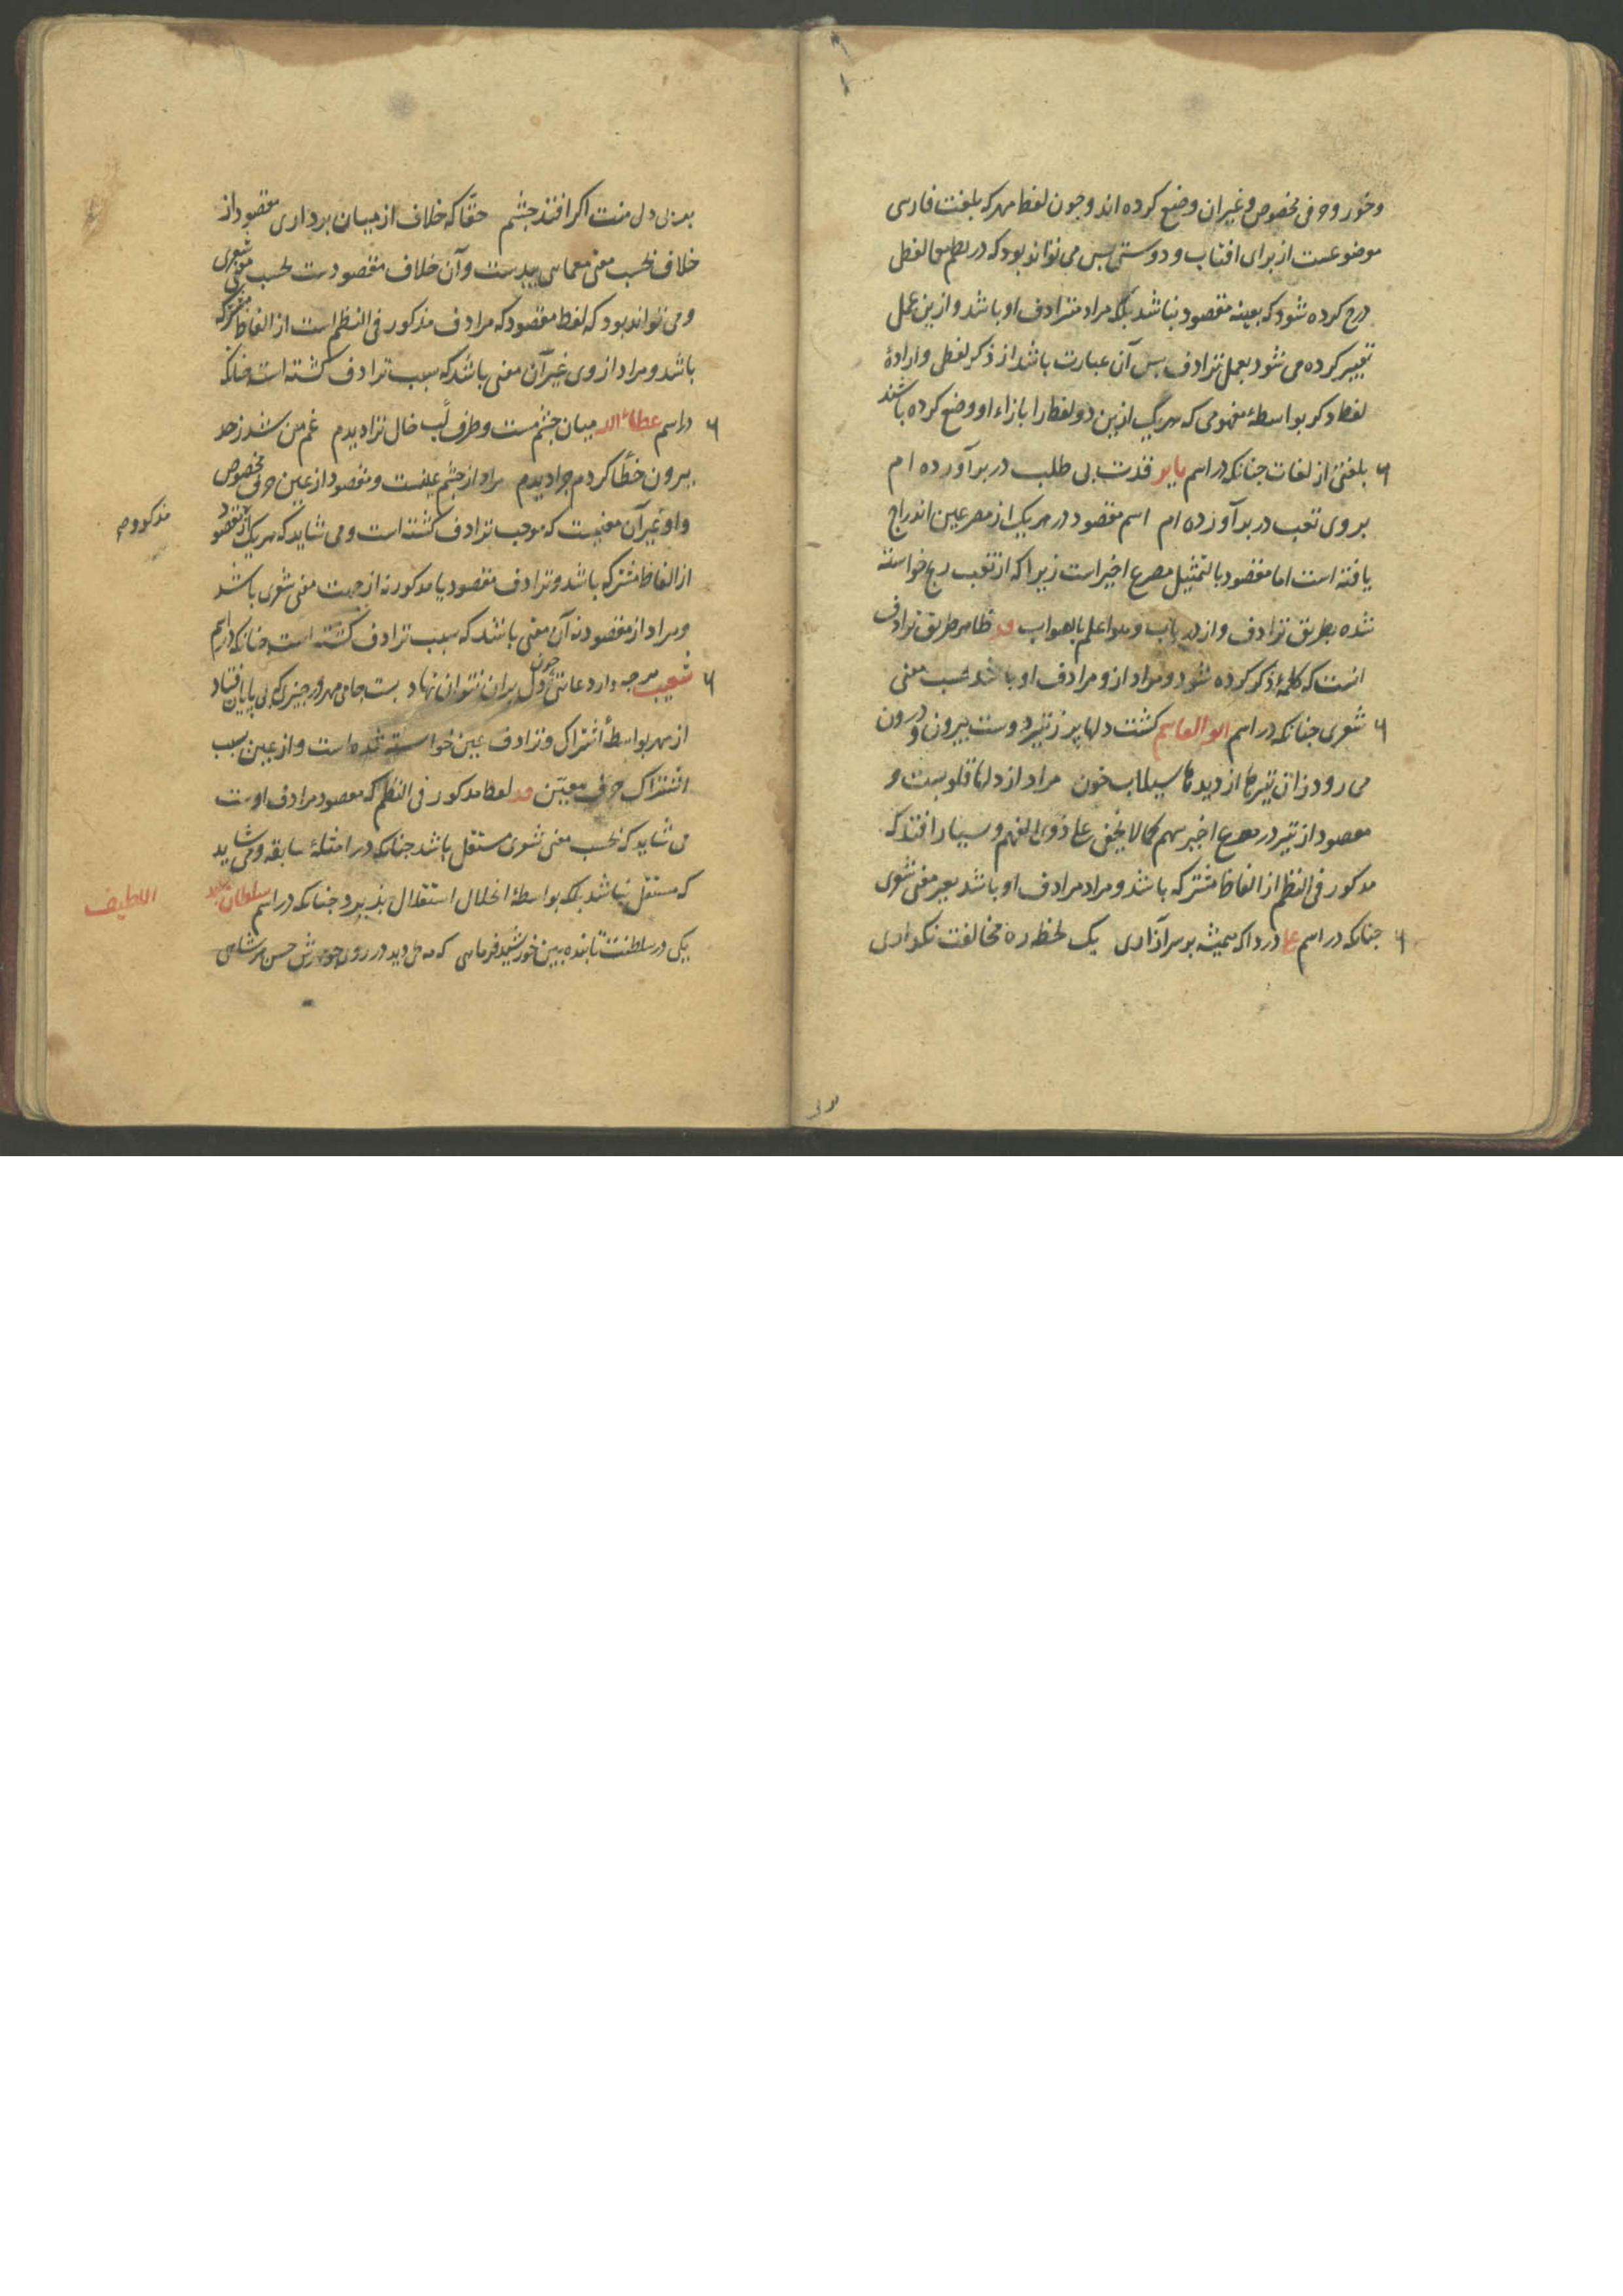 وخور و حرفی مخصوص و غیر آن وضع کرده اند وچون لفظ مهر که بلغت فارسی
موضوعست از برای افتاب و دوستی پس می تواند بود که در نظم لفظی
درج کرده شود که بعینه مقصود نباشد بلکه مراد مترادف او باشد و ازین عمل
تعبیر کرده می شود بعمل ترادف پس آن عبارت باشد از ذکر لفظی و ارادهٔ
لفظ دکر بواسطهٔ مفهومی که هریک ازین دو لفظ را بازاء او وضع کرده باشند
بلغتی از لغات چنانکه در اسم بابر قدت بی طلب در بر آورده ام
بروی تعب در بر آورده ام اسم مقصود در هریک از مصرعین اندراج
یافته است اما مقصود بالتمثیل مصرع اخیر است زیرا که از تعب رنج خواسته
شده بطریق ترادف و از در باب و هو اعلم بالصواب ظاهر طریق ترادف
انست که کلمهٔ ذکر کرده شود و مراد ازو مرادف او باشد بحسب معنی
شعری چنانکه در اسم ابو القاسم کشت دلها پر ز تیر دوست بیرون و درون
می رود زان تیرها از دیدها سیلاب خون مراد از دلها قلوبست و
مقصود از تیر در مصرع اخیر سهم کما لا یخفی علی ذوی الفهم و بسیار افتد که
مذکور فی النظم از الفاظ مشترکه باشد و مراد مرادف او باشد بغیر معنی شعری
چنانکه در اسم دردا که همیشه بر سر آزاری یک لحظه ره مخالفت نکذاری
دل منت اکر افتد چشم حقا که خلاف از میان برداری مقصود از
خلاف بحسب معنی معمایی بیدست و آن خلاف مقصودست بحسب معنی شعری
و می تواند بود که لفظ مقصود که مرادف مذکور فی النظم است از الفاظ مشترکه
باشد و مراد از وی غیر آن معنی باشد که سبب ترادف کشته است چنانکه
در اسم عطاء الله میان چشم مست و طرف لب خال ترا دیدم غم من شد ز حد
بیرون خطا کردم چرا دیدم مراد از چشم عینست و مقصود از عین حرفی مخصوص
و او غیر آن معنیست که موجب ترادف کشته است و می شاید که هریک از مقصود
مذکور و
از الفاظ مشترکه باشد و ترادف مقصود با مذکور نه از جهت معنی شعری باشد
و مراد از مقصود نه آن معنی باشد که سبب ترادف کشته است چنانکه در اسم
شعیب هرچه دارد عاشقی چون دل بران نتوان نهاد بست جامی مهر در چیزی که بی پایان فتاد
از مهر بواسطهٔ اشتراک و ترادف عین خواسته شده است و از عین بسبب
اشتراک حرفی معین لفظ مذکور فی النظم که مقصود مرادف اوست
می شاید که بحسب معنی شعری مستقل باشد چنانکه در امثلهٔ سابقه و می شاید
که مستقل نباشد بلکه بواسطهٔ انحلال استقلال پذیرد چنانکه در اسم سلطان عبد
اللطیف
یکی در سلطنت تابنده بین خورشید فرمایی که مه می دید در روی حسن شاهی